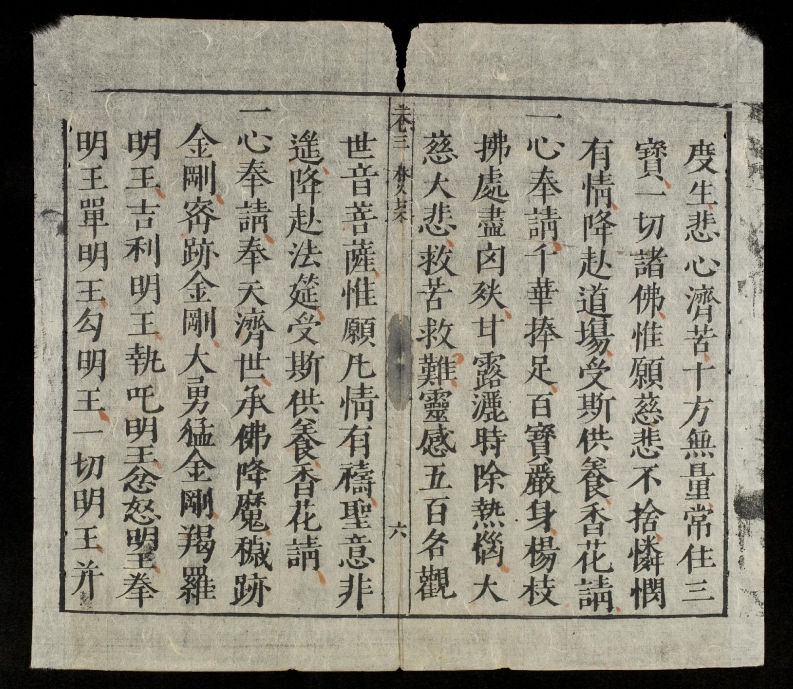 度生悲心濟苦十方無量常住三
寶一切諸佛惟願慈悲不捨憐憫
有情降赴道場受斯供養香花請
一心奉請千華捧足百寶嚴身楊枝
拂處盡凶殃甘露灑時除熱惱大
慈大悲救苦救難靈感五百名觀
卷三 六
世音菩薩惟願凡情有禱聖意非
遙降赴法筵受斯供養香花請
一心奉請奉天濟世承佛降魔穢跡
金剛密跡金剛大勇猛金剛羯羅
明王吉利明王執吒明王忿怒明王拳
明王單明王勾明王一切明王并